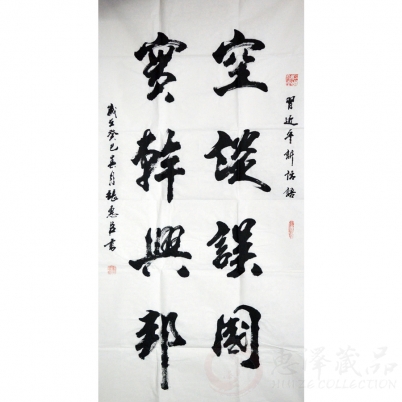 習近平
空談誤國
實幹興邦
歲在癸巳春月張惠臣書
惠泽藏品
HUIZE COLLECTION